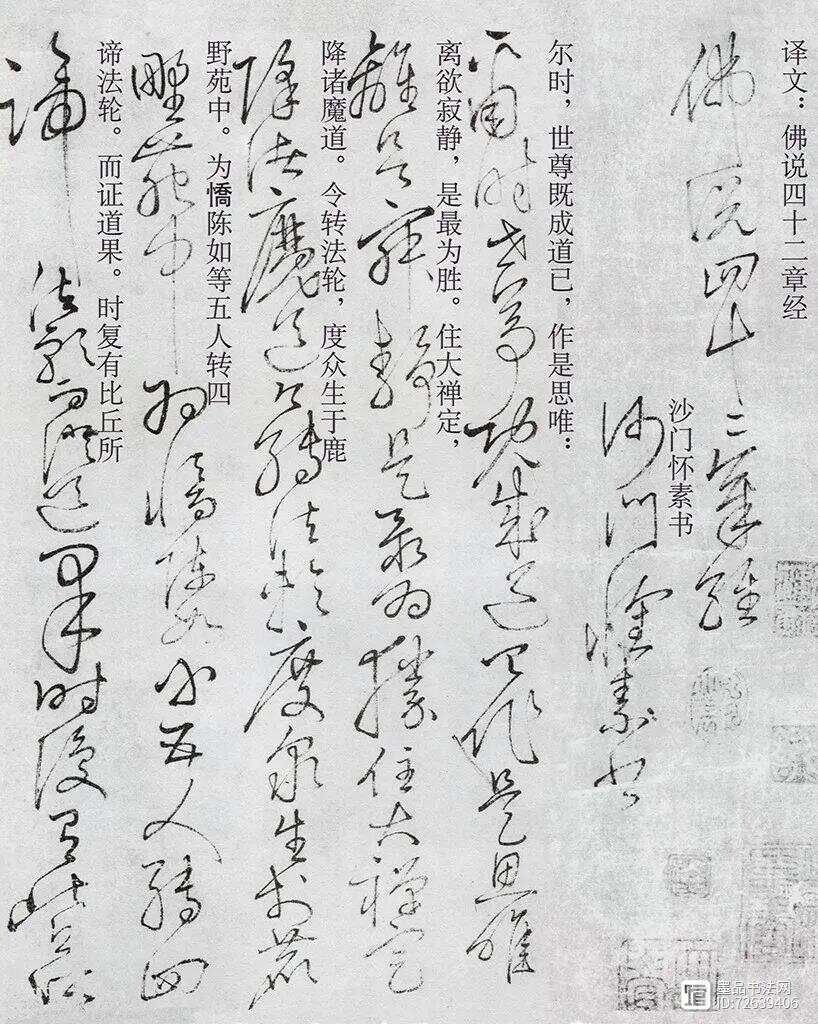 译文：佛说四十二章经
佛说四十二章经
沙门怀素书
沙门怀素书
尔时，世尊既成道已，作是思唯：
尔时世尊既成道已作是思唯
离欲寂静，是最为胜。住大禅定，
離欲寂静是最为勝住大禅定
降诸魔道。令转法轮，度众生于鹿
降诸魔道令转法轮度众生于鹿
野苑中。为憍陈如等五人转四
野苑中为憍陈如等五人转四
谛法轮。而证道果。时复有比丘所
谛法轮而证道果时复有比丘所
墨品书法网
ID:72639406